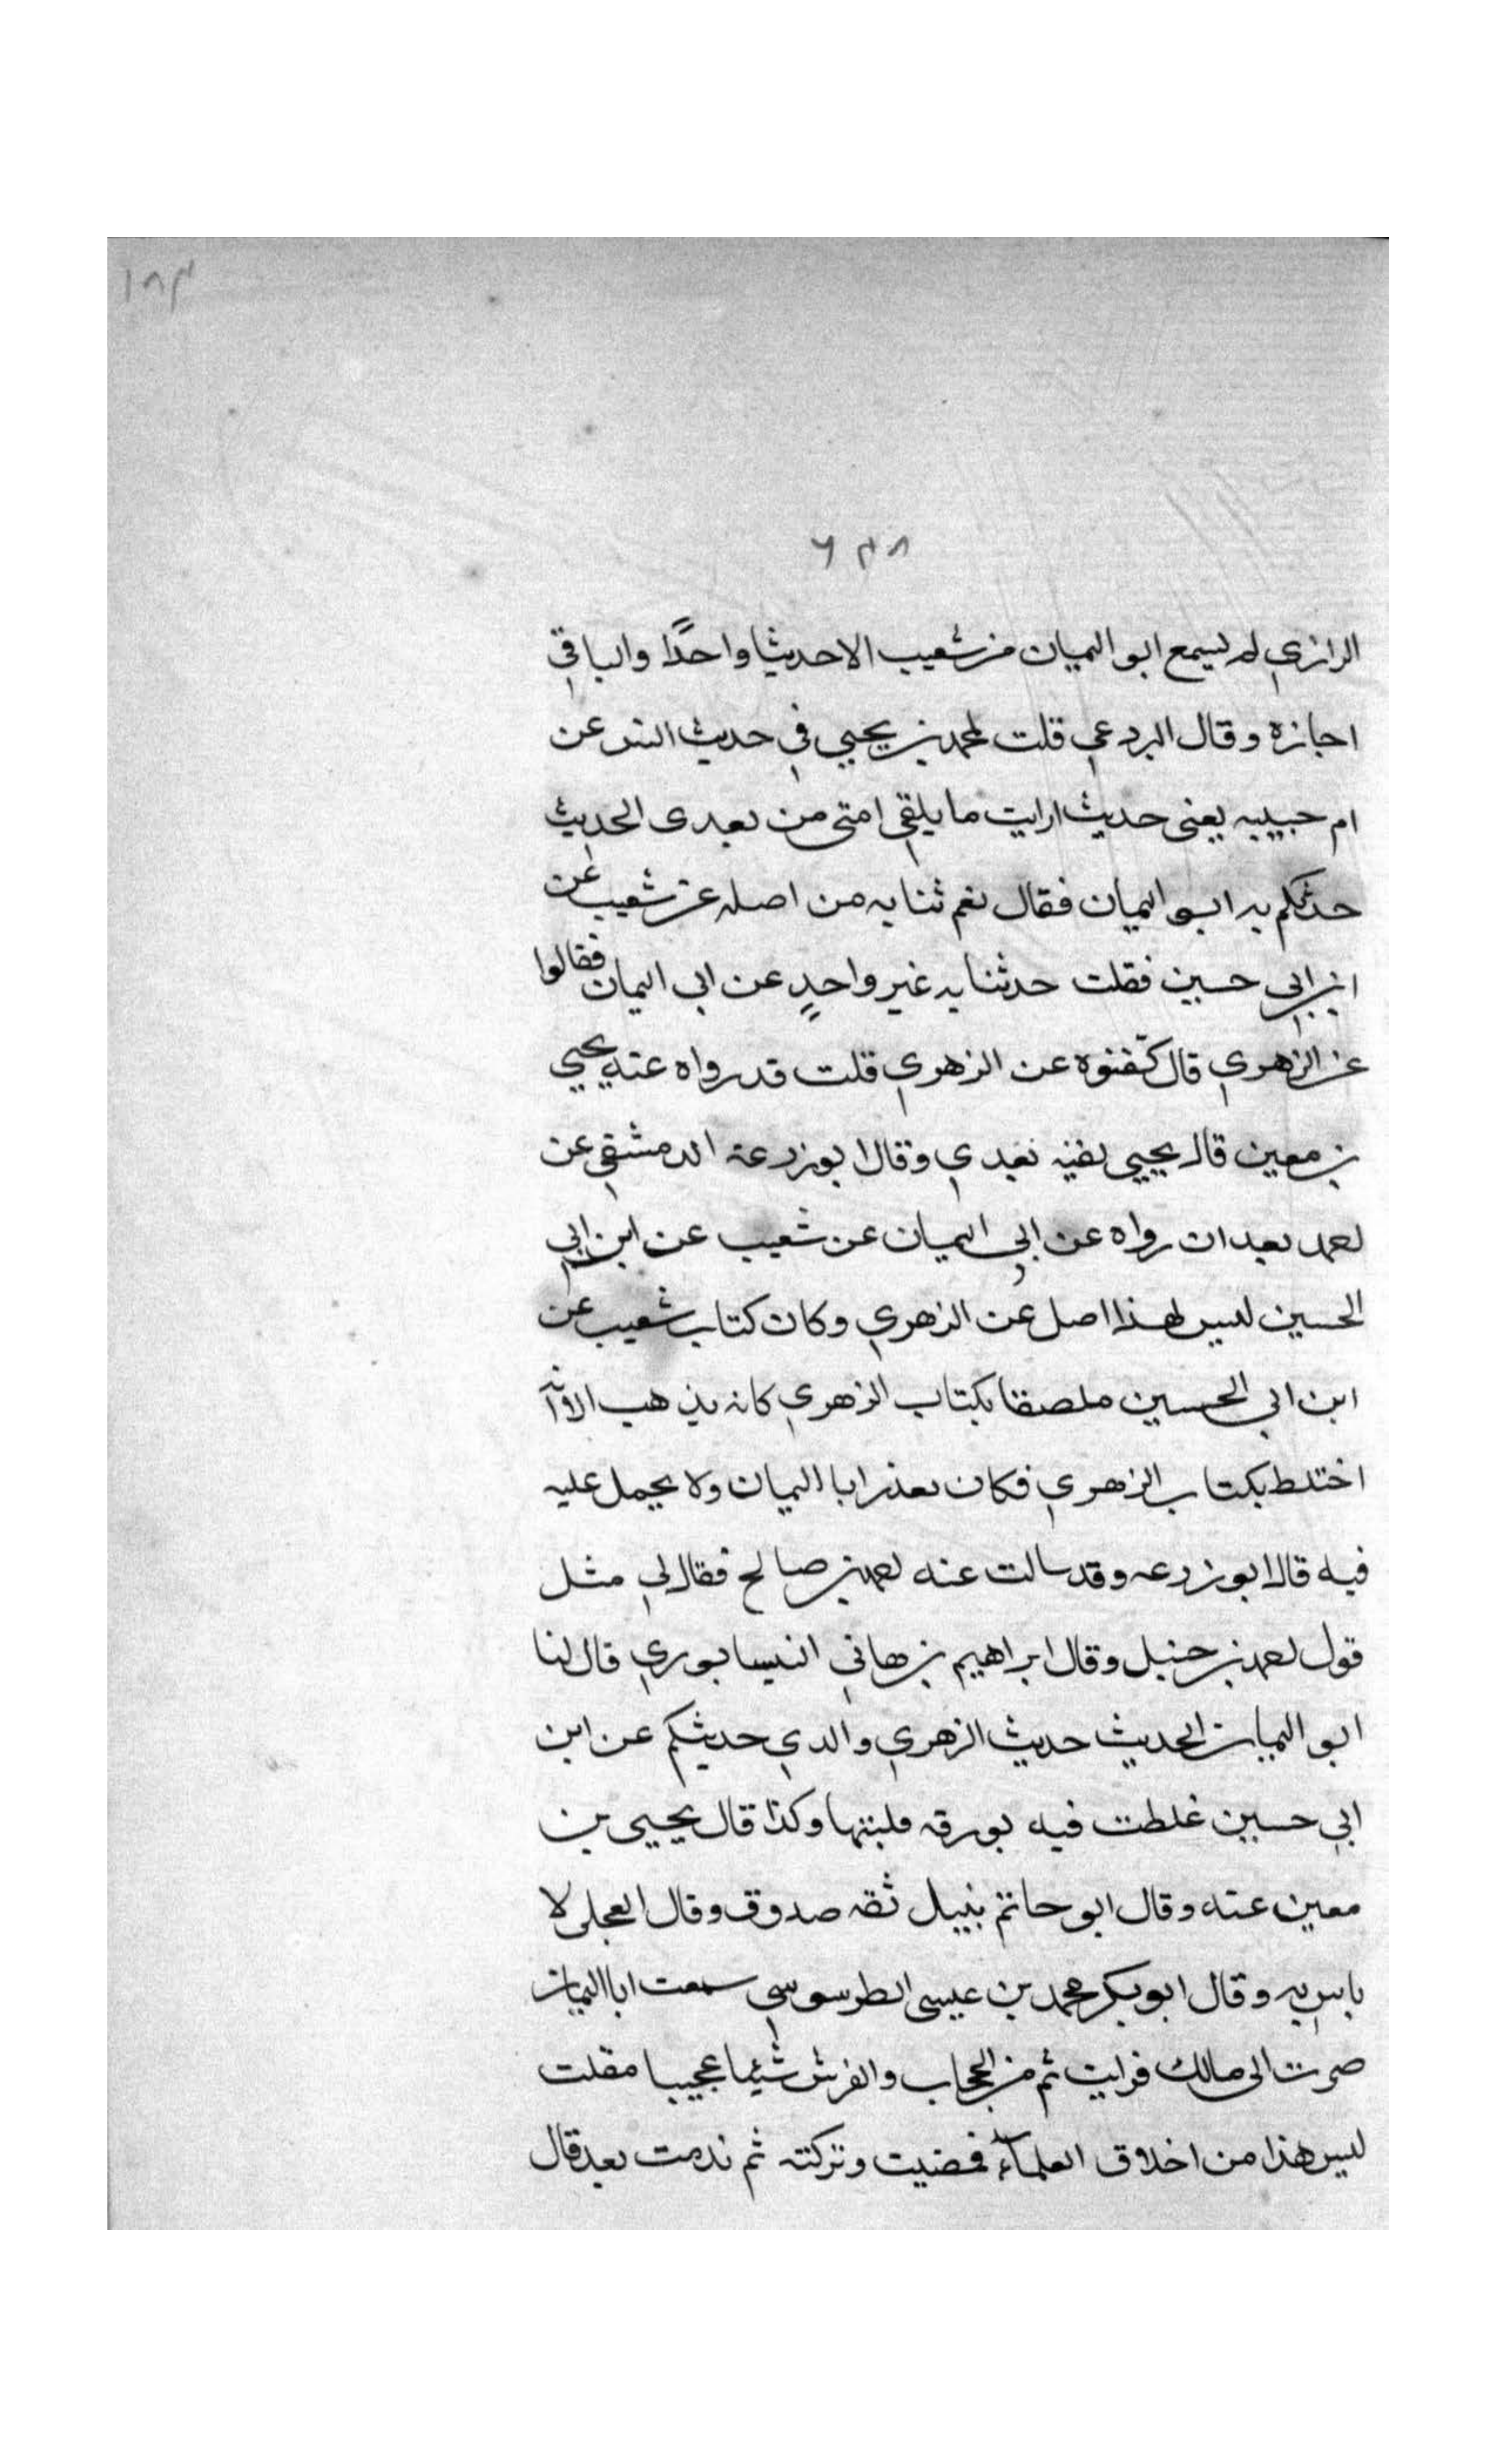 ١٨٣
٦٣٨
الرازي لم يسمع ابو اليمان من شعيب الا حديثا واحدًا والباقي
اجازة وقال البردعي قلت لمحمد بن يحيي في حديث انس عن
ام حبيبه يعنى حديث ارايت ما يلقي امتى من بعدى الحديث
حدثكم به ابو اليمان فقال نعم ثنا به من اصله عن شعيب عن
ابن ابي حسين فقلت حدثنا به غير واحدٍ عن ابى اليمان فقالوا
عن الزهري قال عن الزهري قلت قد رواه عنه يحيي
بن معين قال يحيي بعدي وقال ابو زرعة الدمشقي عن
احمد بعد ان رواه عن ابي اليمان عن شعيب عن ابن ابي
الحسين ليس لهذا اصل عن الزهري وكان كتاب شعيب عن
ابن ابي الحسين ملصقا بكتاب الزهري كانه يذهب الا انه
اختلط بكتاب الزهري فكان يعذر ابا اليمان ولا يحمل عليه
فيه قال ابو زرعه وقد سالت عنه احمد بن صالح فقال لي مثل
قول احمد بن حنبل وقال ابراهيم بن هاني النيسابوري قال لنا
ابو اليمان الحديث حديث الزهري والدي حديثكم عن ابن
ابي حسين غلطت فيه بورقه قلبتها وكذا قال يحيى بن
معين عنه وقال ابو حاتم نبيل ثقه صدوق وقال العجلى لا
باس به وقال ابو بكر محمد بن عيسى الطرسوسي سمعت ابا اليمان
صرت الى مالك فرايت ثم من الحجاب والفرش شيئا عجيبا فقلت
ليس هذا من اخلاق العلماء فمضيت وتركته ثم ندمت بعد قال